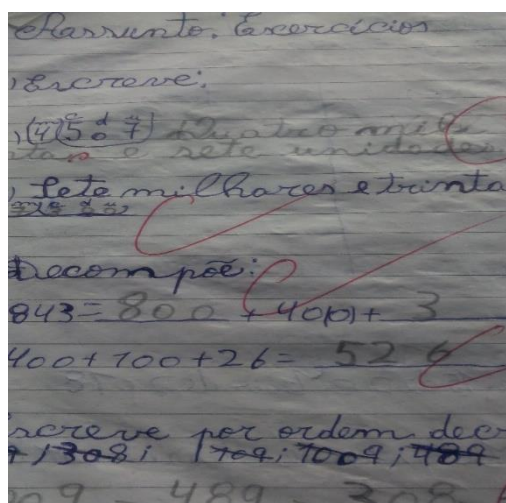 Assunto: Exercícios
Escreve:
(4507) Quatro mil
e sete unidades
Sete milhares e trinta
Decompõe:
843 = 800 + 40(0) + 3
400 + 100 + 26 = 526
screve por ordem decr
1308; 1709; 7009; 489
489 308